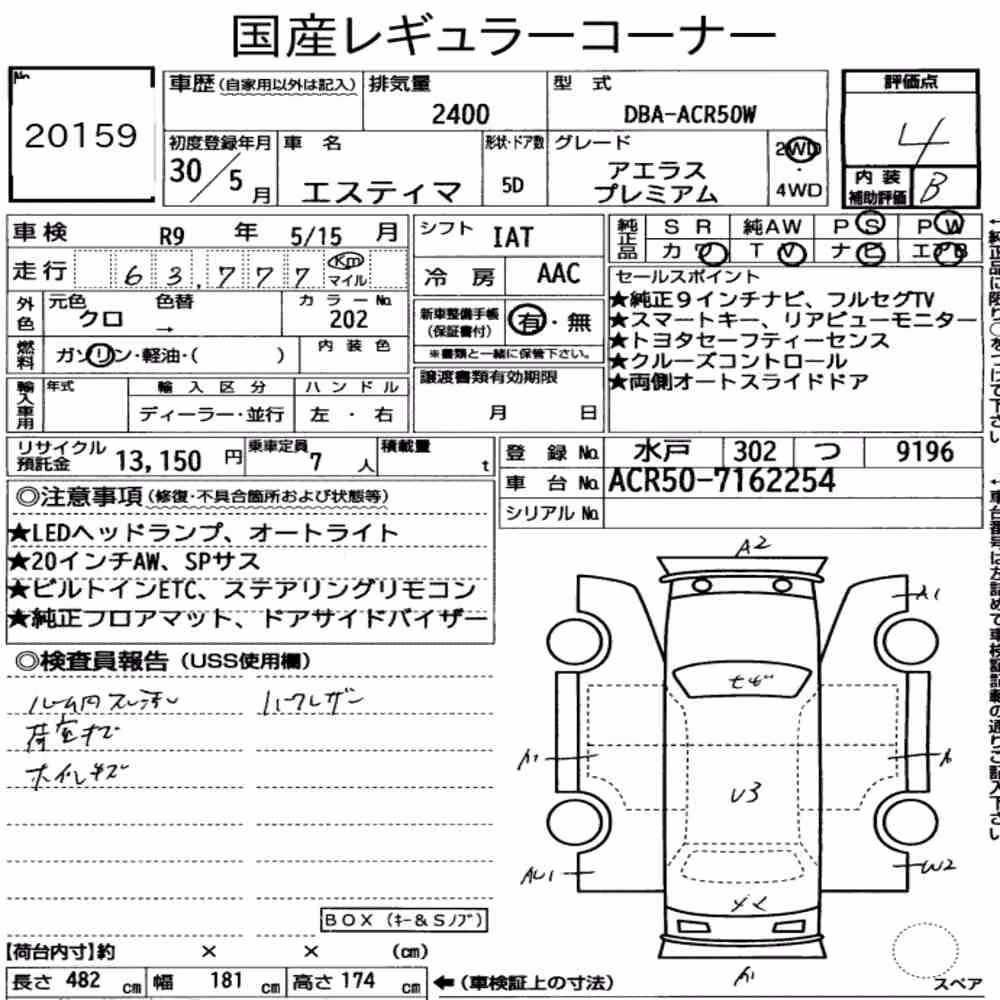 国産レギュラーコーナー
No.
20159
車歴(自家用以外は記入) 排気量 2400 型式 DBA-ACR50W
評価点 4
内装補助評価 B
初度登録年月 30/5月 車名 エスティマ 形状・ドア数 5D グレード アエラス プレミアム 2WD・4WD
車検 R9年 5/15月 シフト IAT
純正品 SR 純AW PS PW
カワ TV ナビ エアB
走行 63,777 Km マイル 冷房 AAC
外色 元色 クロ 色替 → カラーNo. 202
新車整備手帳(保証書付) 有・無
※書類と一緒に保管下さい。
燃料 ガソリン・軽油・( ) 内装色
譲渡書類有効期限 月 日
輸入車用 年式 輸入区分 ディーラー・並行 ハンドル 左・右
セールスポイント
★純正9インチナビ、フルセグTV
★スマートキー、リアビューモニター
★トヨタセーフティーセンス
★クルーズコントロール
★両側オートスライドドア
リサイクル預託金 13,150円 乗車定員 7人 積載量 t
登録No. 水戸 302 つ 9196
車台No. ACR50-7162254
シリアルNo.
◎注意事項(修復・不具合箇所および状態等)
★LEDヘッドランプ、オートライト
★20インチAW、SPサス
★ビルトインETC、ステアリングリモコン
★純正フロアマット、ドアサイドバイザー
◎検査員報告(USS使用欄)
ルーム内スレ汚レ ハーフレザー
荷室キズ
ホイルキズ
A2
A1
U3
W2
BOX(キー&Sノブ)
【荷台内寸】約 × × (cm)
長さ 482 cm 幅 181 cm 高さ 174 cm ←(車検証上の寸法)
スペア